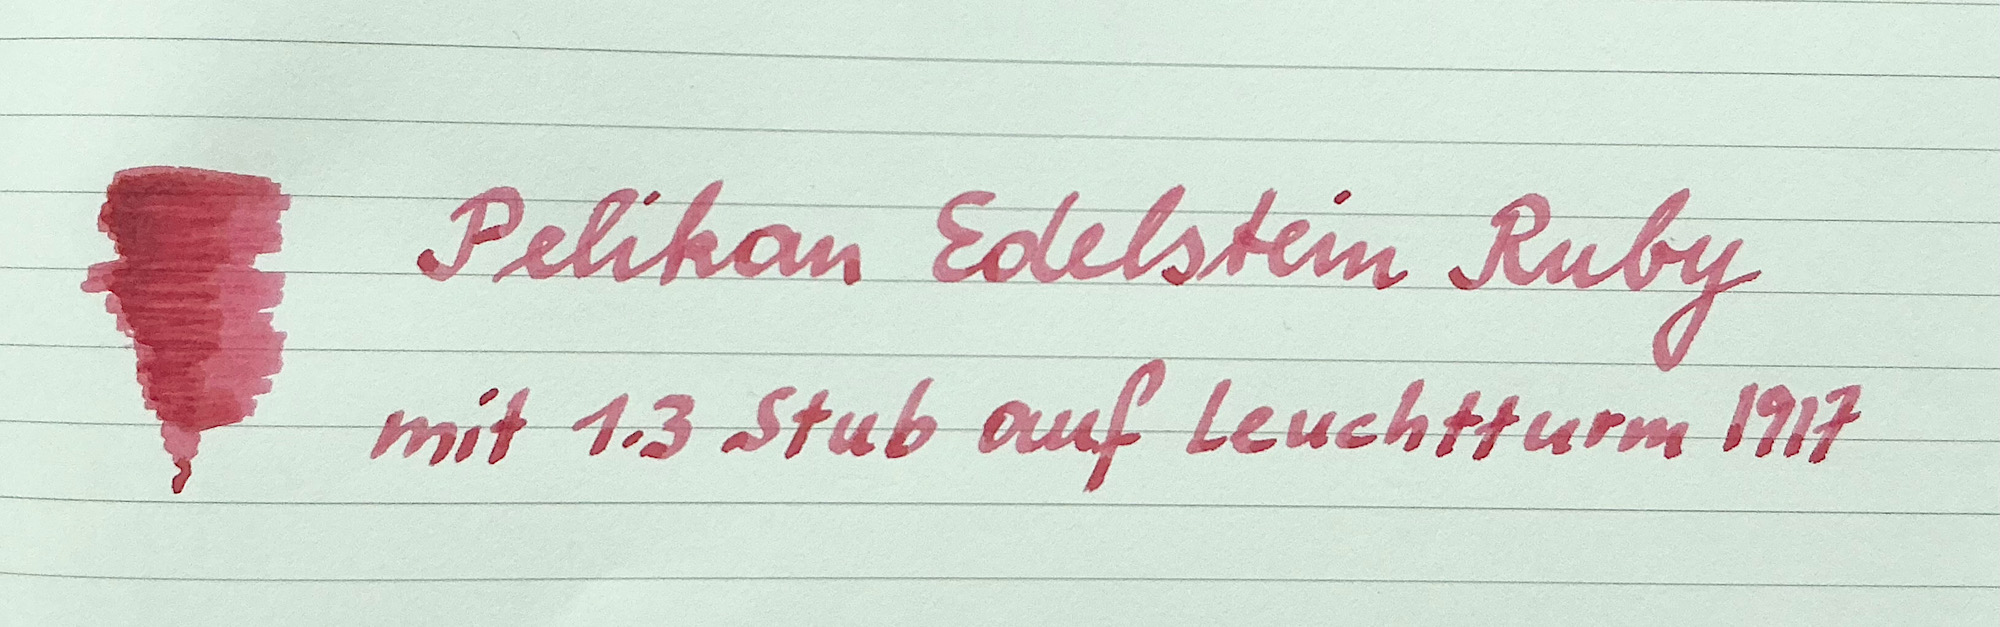 Pelikan Edelstein Ruby
mit 1.3 Stub auf Leuchtturm 1917